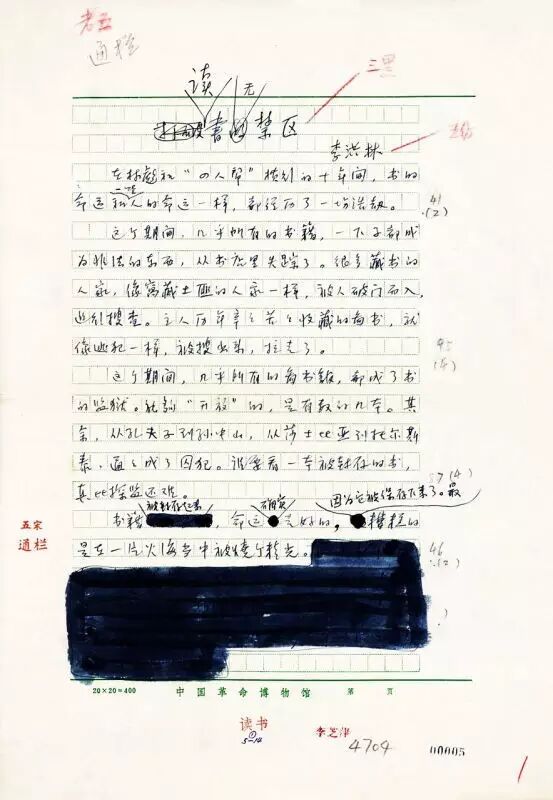 老五
通栏
三黑
读 无
书 禁区
李洪林
在林彪和“四人帮”横行的十年间，书的
命运和人的命运一样，都经历了一场浩劫。
41
(2)
这个期间，几乎所有的书籍，一下子都成
为非法的东西，从书店里失踪了。很多藏书的
人家，像窝藏土匪的人家一样，被人破门而入，
进行搜查。主人历年辛辛苦苦收藏的图书，就
像逃犯一样，被搜出来，拉走了。
45
(4)
这个期间，几乎所有的图书馆，都成了书
的监狱。能够“开放”的，是有数的几本。其
余，从孔夫子到孙中山，从莎士比亚到托尔斯
泰，通通成了囚犯。谁要看一本被封存的书，
(4)
真比探监还难。
被封存起来 确实 因为它被保存下来了。最
书籍 ，命运 是好的， 糟糕的
是在一片火海当中被烧个精光。
46
(2)
五宋
通栏
20×20=400 中国革命博物馆 第 页
读书
5-14
李芝萍
4704
00005